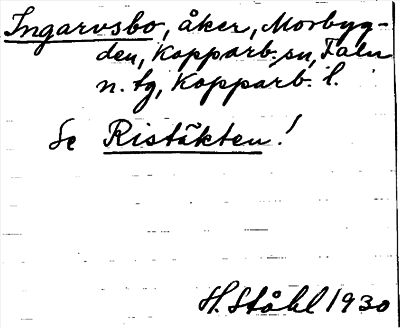 Ingarvsbo, åker, Morbyg-
den, Kopparb. sn, Falu
n. tg, Kopparb. l.
Se Ristäkten!
H. Ståhl 1930